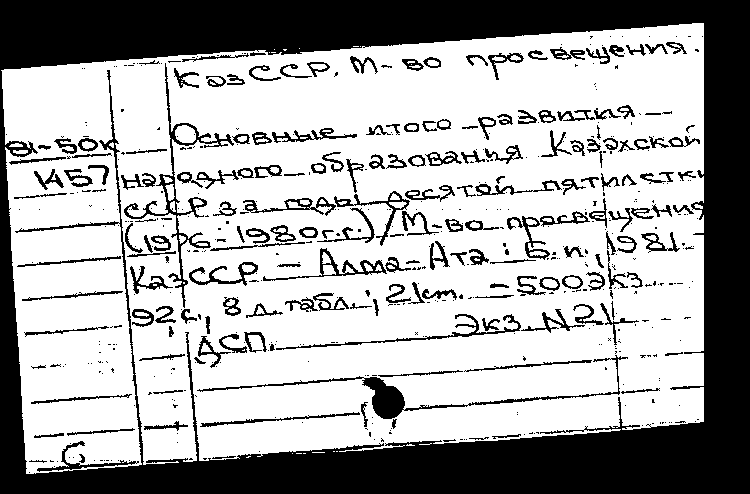 КазССР. М-во просвещения.
81-50к Основные итого развития
1457 народного образования Казахской
СССР за годы десятой пятилетки
(1976-1980г.г.)/М-во просвещения
КазССР - Алма-Ата: Б.и., 1981.-
92с., 8 л. табл.; 21cm. - 500экз.
ДСП. Экз. N21.